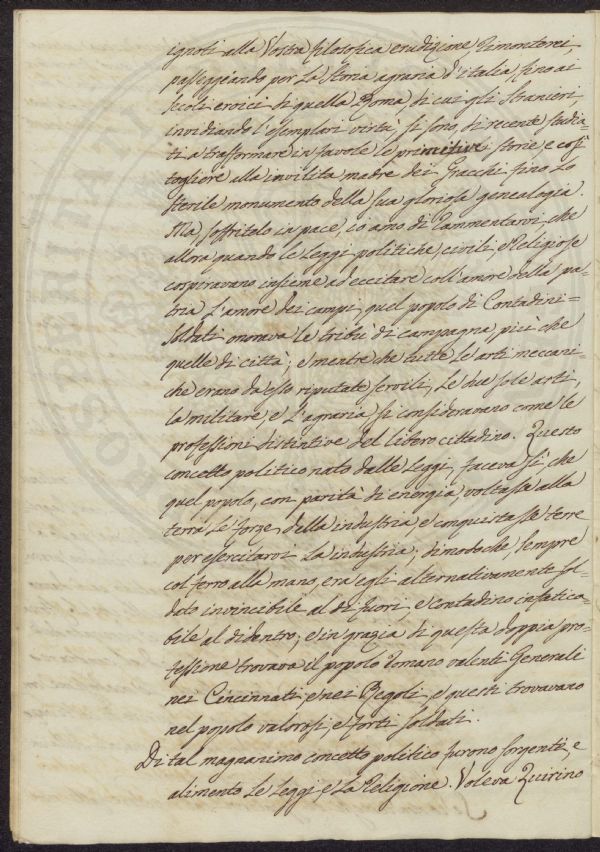 ignoti alla Vostra filosofica erudizione rimonterei,
passeggiando per la storia agraria d'italia, fino ai
secoli eroici di quella Roma di cui gli Stranieri,
invidiando l'esemplari virtù si sono, di recente studia=
ti a trasformare in favole le primitive storie, e così
togliere alla invilita madre dei Gracchi fino lo
sterile monumento della sua gloriosa genealogia.
Ma soffritelo in pace, io amo di rammentarvi, che
allora quando le leggi politiche, civili, e Religiose
cosperavano insieme ad eccitare coll'amore della pa=
tria l'amore dei campi, quel popolo di Contadini=
Soldati onorava le tribù di campagna, più che
quelle di città; e mentre che tutte le arti meccani=
che erano da esso riputate servili, le due sole arti,
la militare, e l'agraria si consideravano come le
professioni distintive del libero cittadino. Questo
concetto politico nato dalle leggi, faceva sì, che
quel popolo, con parità di energia, voltasse alla
terra le forze della industria, e conquistasse terre
per esercitarvi la industria; dimodoche, sempre
col ferro alla mano, era egli alternativamente sol=
dato invincibile al di fuori, e contadino infatica=
bile al didentro; e in grazia di questa doppia pro=
fessione trovava il popolo romano valenti Generali
nei Cincinnati, e nei Regoli, e questi trovavano
nel popolo valorosi, e forti soldati.
Di tal magnanimo concetto politico furono sorgente, e
alimento le leggi, e la Religione. Voleva Quirino